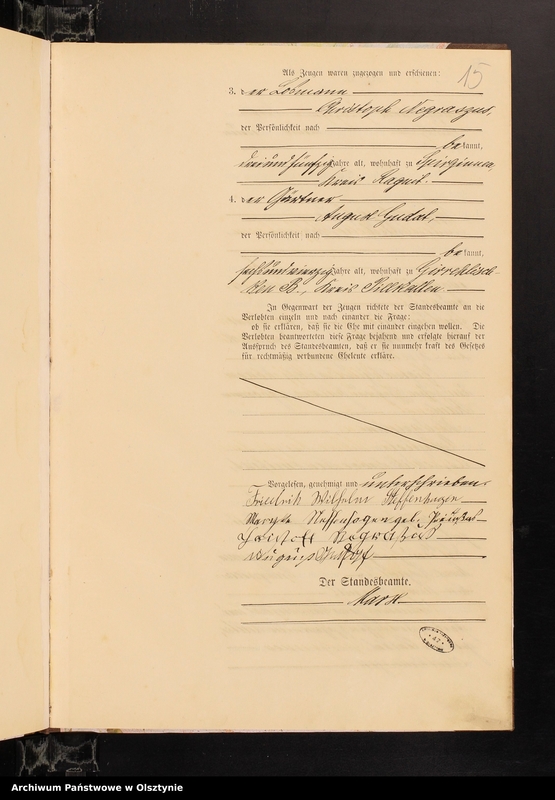 15
Als Zeugen waren zugezogen und erschienen:
3. der Losmann
Christoph Negraszus,
der Persönlichkeit nach
bekannt,
dreiundfünfzig Jahre alt, wohnhaft zu
Kreis Ragnit.
4. der Gärtner
August Gudat,
der Persönlichkeit nach
bekannt,
sechsundvierzig Jahre alt, wohnhaft zu Girrehlisch-
ken B., Kreis Pillkallen
In Gegenwart der Zeugen richtete der Standesbeamte an die
Verlobten einzeln und nach einander die Frage:
ob sie erklären, daß sie die Ehe mit einander eingehen wollen. Die
Verlobten beantworteten diese Frage bejahend und erfolgte hierauf der
Ausspruch des Standesbeamten, daß er sie nunmehr kraft des Gesetzes
für rechtmäßig verbundene Eheleute erkläre.
Vorgelesen, genehmigt und unterschrieben.
Friedrich Wilhelm Steffenhagen
geb.
August
Der Standesbeamte.
Marx
Archiwum Państwowe w Olsztynie